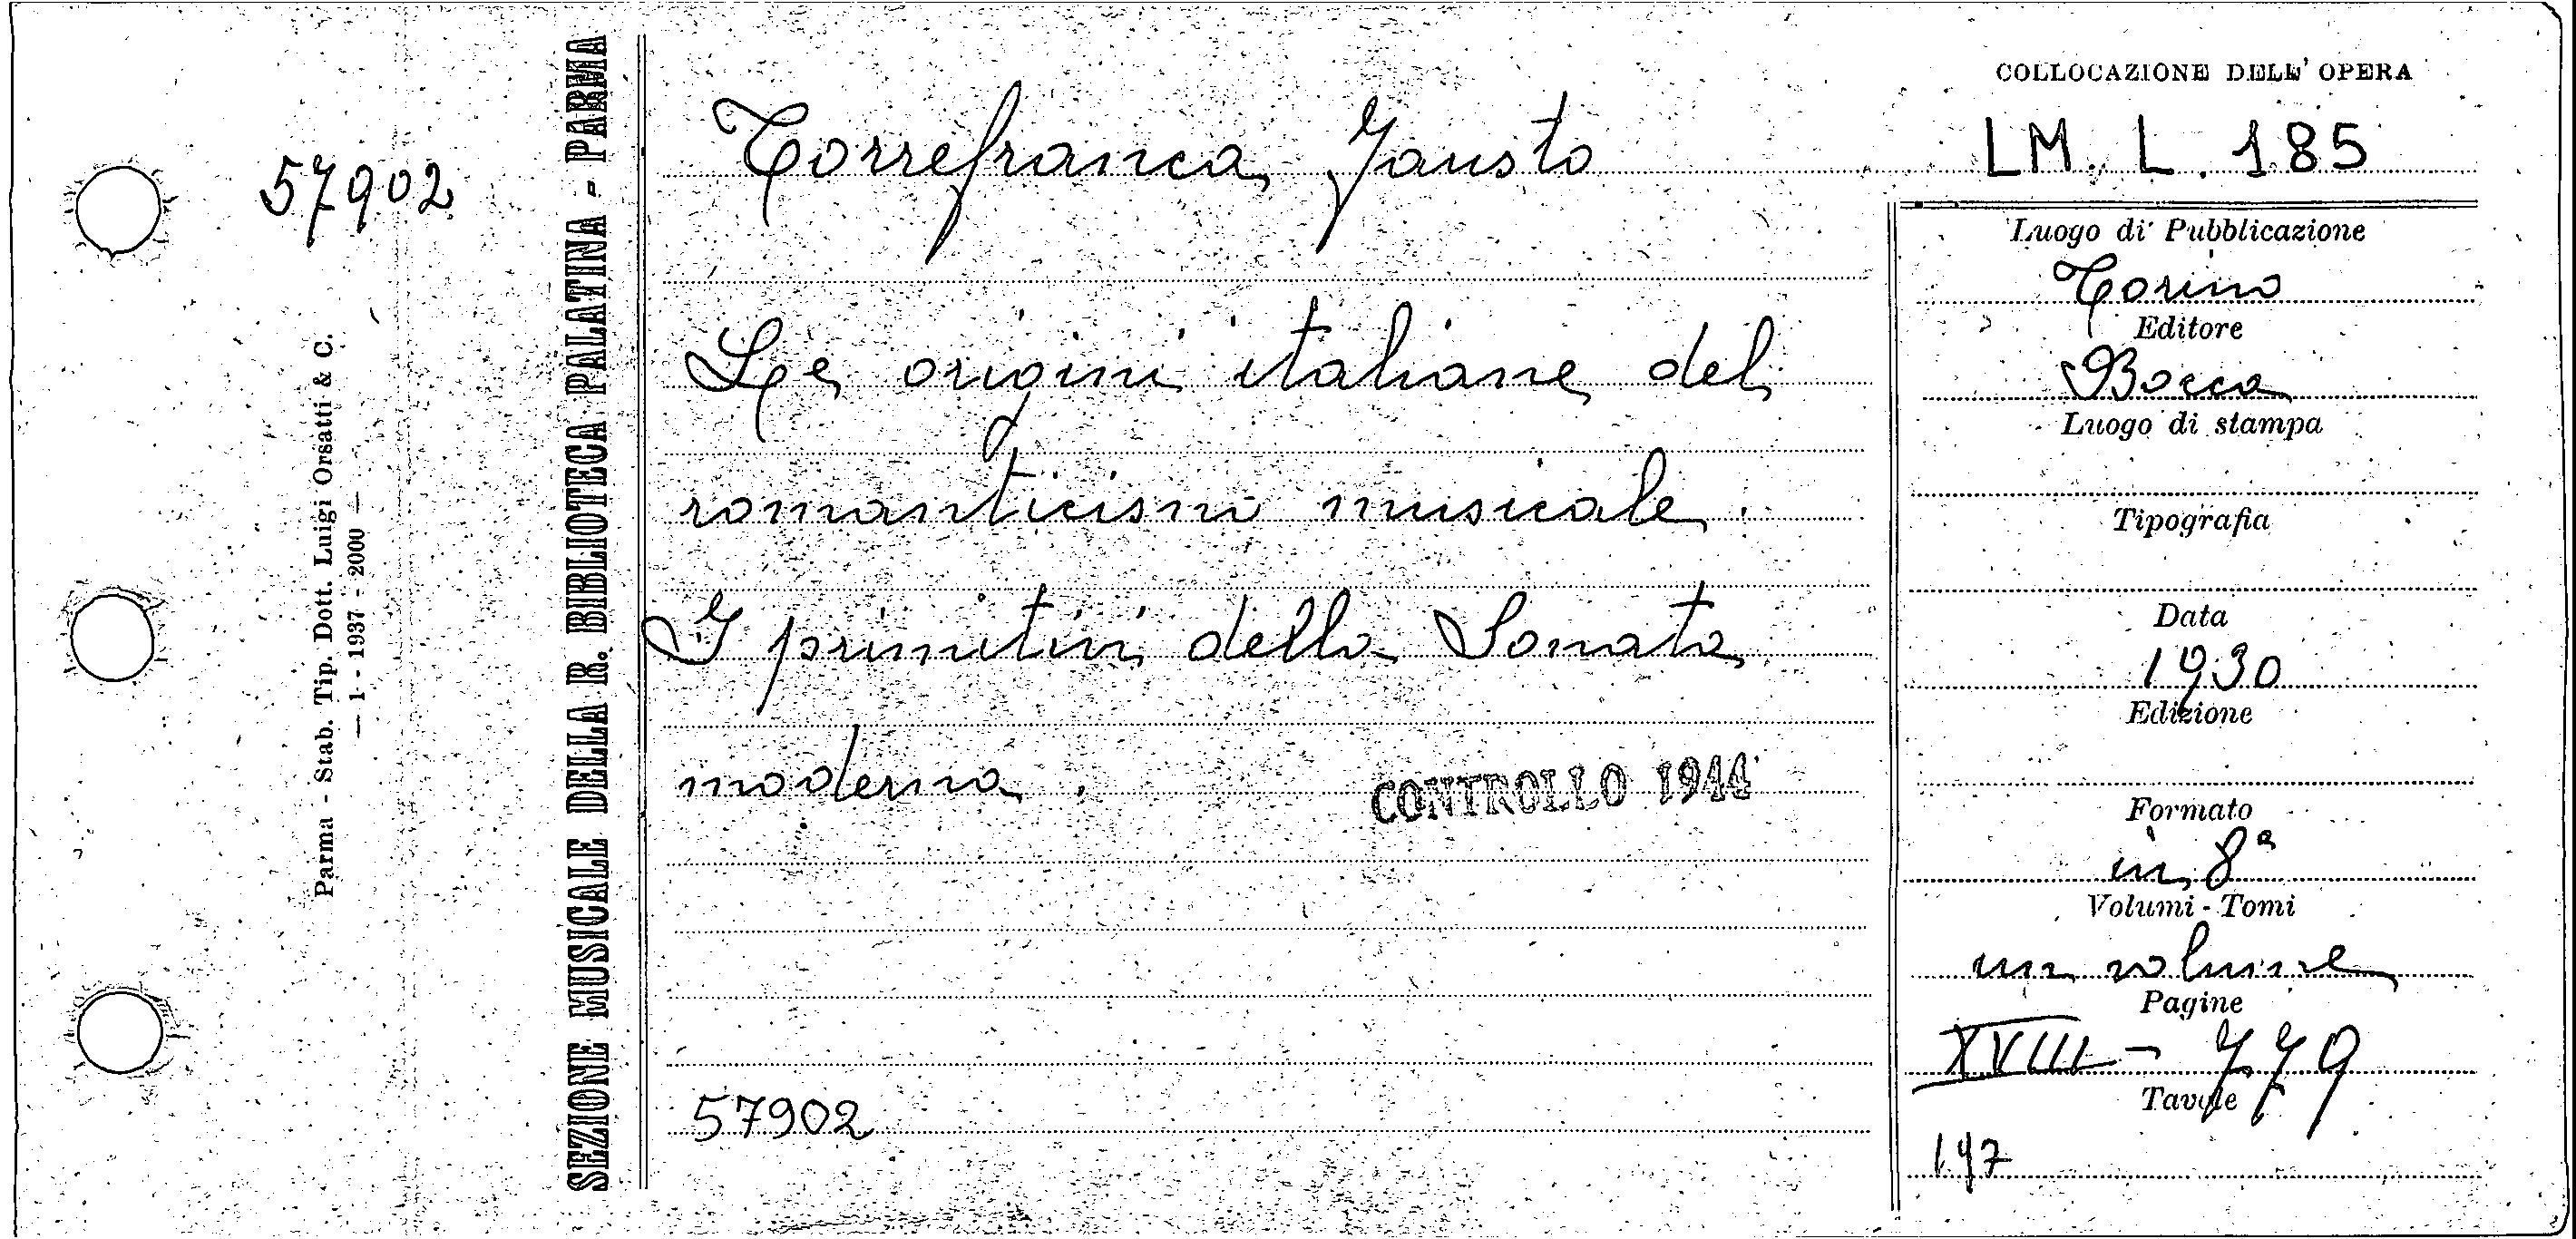 57902
Parma - Stab. Tip. Dott. Luigi Orsatti & C.
— 1 - 1937 - 2000 —
SEZIONE MUSICALE DELLA R. BIBLIOTECA PALATINA - PARMA
Torrefranca, Fausto
Le origini italiane del
romanticismo musicale.
I primitivi della Sonata
moderna.
CONTROLLO 1944
57902
COLLOCAZIONE DELL' OPERA
LM. L. 185
Luogo di Pubblicazione
Torino
Editore
Bocca
Luogo di stampa
Tipografia
Data
1930
Edizione
Formato
in 8º
Volumi - Tomi
un volume
Pagine
XVIII - 779
Tavole